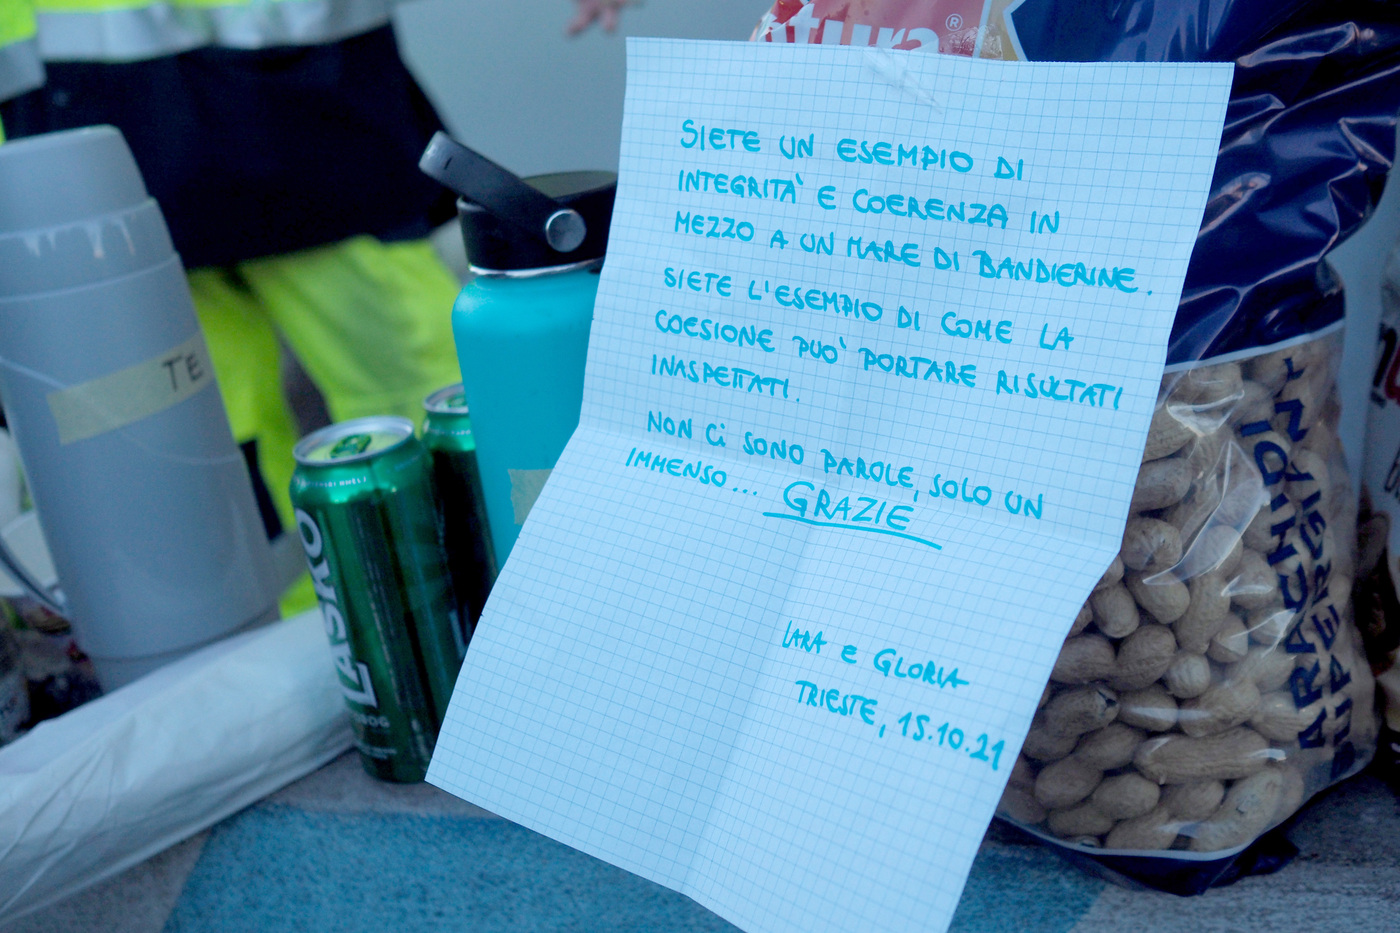 SIETE UN ESEMPIO DI
INTEGRITÀ E COERENZA IN
MEZZO A UN MARE DI BANDIERINE.
SIETE L'ESEMPIO DI COME LA
COESIONE PUO' PORTARE RISULTATI
INASPETTATI.
NON Ci SONO PAROLE, SOLO UN
IMMENSO... GRAZIE
IARA E GLORIA
TRIESTE, 15.10.21
TE
LAŠKO
ARACHIDI